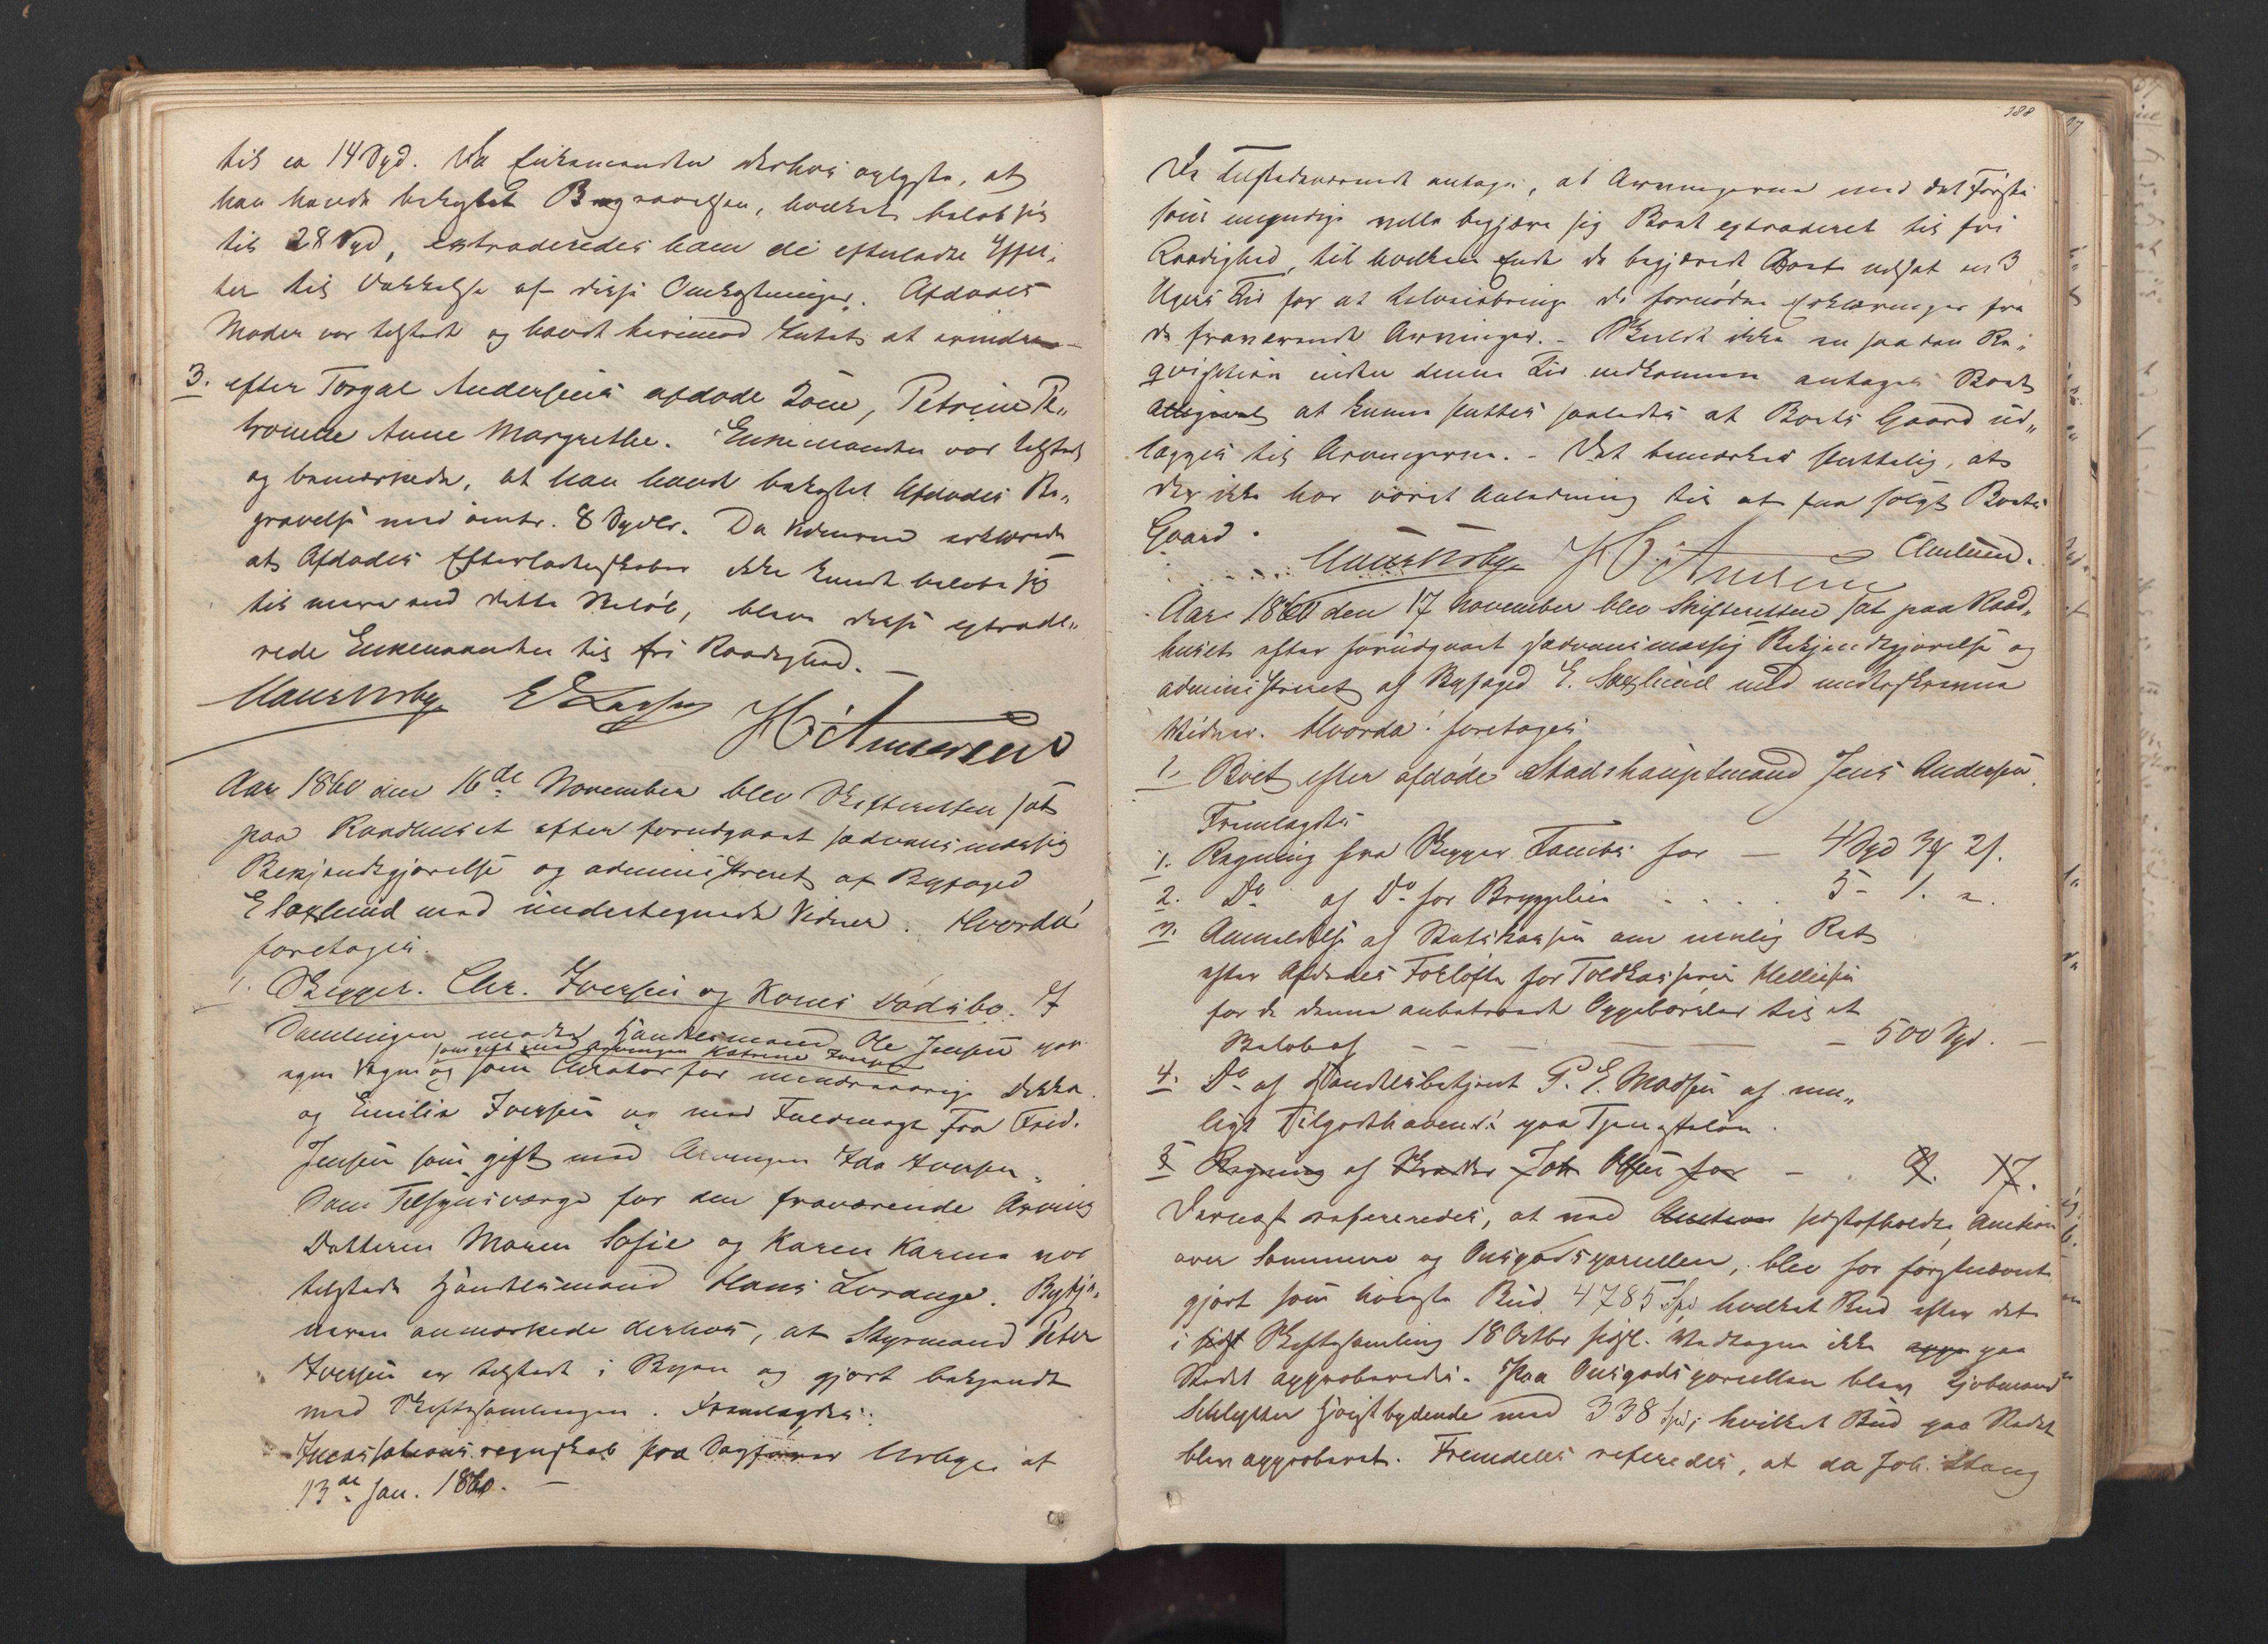 til ca 14 Spd. Da Enkemanden derhos oplyste, at
han havde bekostet Begravelsen, hvilket beløb sig
til 28 Spd, extraderedes ham de efterladte Effec-
ter til Dækkelse af disse Omkostninger. Afdødes
Moder var tilstede og havde herimod Intet at erindre
3. efter Torgal Andersens afdøde Kone, Petrine Pe„
tronille Anne Margrethe. Enkemanden var tilstede
og bemærkede, at han havde bekostet Afdødes Be„
gravelse med omtr. 8 Spdlr. Da Vidnerne erklærede
at Afdødes Efterladenskaber ikke kunde beløbe sig
til mere end dette Beløb, bleve disse extrade„
rede Enkemanden til fri Raadighed.
H. Andersen
Aar 1860 den 16de November blev Skifteretten sat
paa Raadhuset efter forudgaaet sædvansmæssig
Bekjendtgjørelse og administreret af Byfoged
E Saxlund med undertegnede Vidner. Hvorda
foretoges.
1. Skipper Chr. Iversen og Kones Dødsbo. I
Samlingen mødte Handelsmand Ole Jensen paa
som gift med Arvingen Katrine Iversen
egne Vegne og som Curator for mindreaarige
og Emilie Iversen og med Fuldmagt fra Fred.
Jensen som gift med Arvingen Ida Iversen
Som Tilsynsværge for den fraværende Arving
Datteren Maren Sofie og Karen Karine var
tilstede Handelsmand Hans Lorange.
anmærkede derhos, at Styrmand Peter
Iversen er tilstede i Byen og gjort bekjendt
med Skiftesamlingen. Fremlagdes:
Incassationsregnskab fra Sagfører af
13de Jan. 1860.
188
De Tilstedeværende antage, at Arvingerne med det Første
som myndige ville begjære sig Boet extraderet til fri
Raadighed, til hvilken Ende de begjærede Boet udsat en 3
Ugers Tid for at tilveiebringe de fornødne Erklæringer fra
de fraværende Arvinger. - Skulde ikke en saadan Re-
qvisition inden denne Tid indkomme antages Boet
at kunne sluttes saaledes at Boets Gaard ud„
lægges til Arvingerne. - Det bemærkes sluttelig, at
der ikke har været Anledning til at faa solgt Boets
Gaard.
H. Andersen
Aar 1860 den 17 November blev Skifteretten sat paa Raad„
huset efter forudgaaet sædvansmæssig Bekjendtgjørelse og
administreret af Byfoged E. Saxlund med underskrevne
Vidner. Hvorda foretoges
1. Boet efter afdøde Stadshauptmand Jens Andersen.
Fremlagdes
1. Regning fra Skipper for — 4 Spd 3 21.
2. Do af Do for Bryggeleie . . . . 5 - 1. -.
3. Anmeldelse af Statskassen om mulig Ret
efter Afdødes Forløfte for Toldkasserer Mellesen
for de denne anbetroede Oppebørsler til et
Beløb af — — — 500 Spd. —
4. Do af Handelsbetjent P. E. Madsen af mu„
ligt Tilgodehavende paa Tjenesteløn.
5 Regning af Skrædder Joh Olsen for - . 9. 17.
Dernæst refereredes, at ved Auction sidstafholdte Auction
over Tommene og Ousgodsparcellen, blev for førstnævnte
gjort som høieste Bud 4785 Spd hvilket Bud efter det
i sidst Skiftesamling 18 Octbr sidstl. Vedtagne ikke appr paa
Stedet approberedes. Paa Ousgodsparcellen blev Kjøbmand
Schlytter høistbydende med 338 Spd, hvilket Bud paa Stedet
blev approberet. Fremdeles referedes, at da Joh. Stang